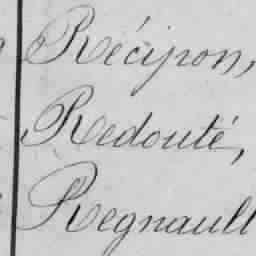 Récipon,
Redouté,
Regnault